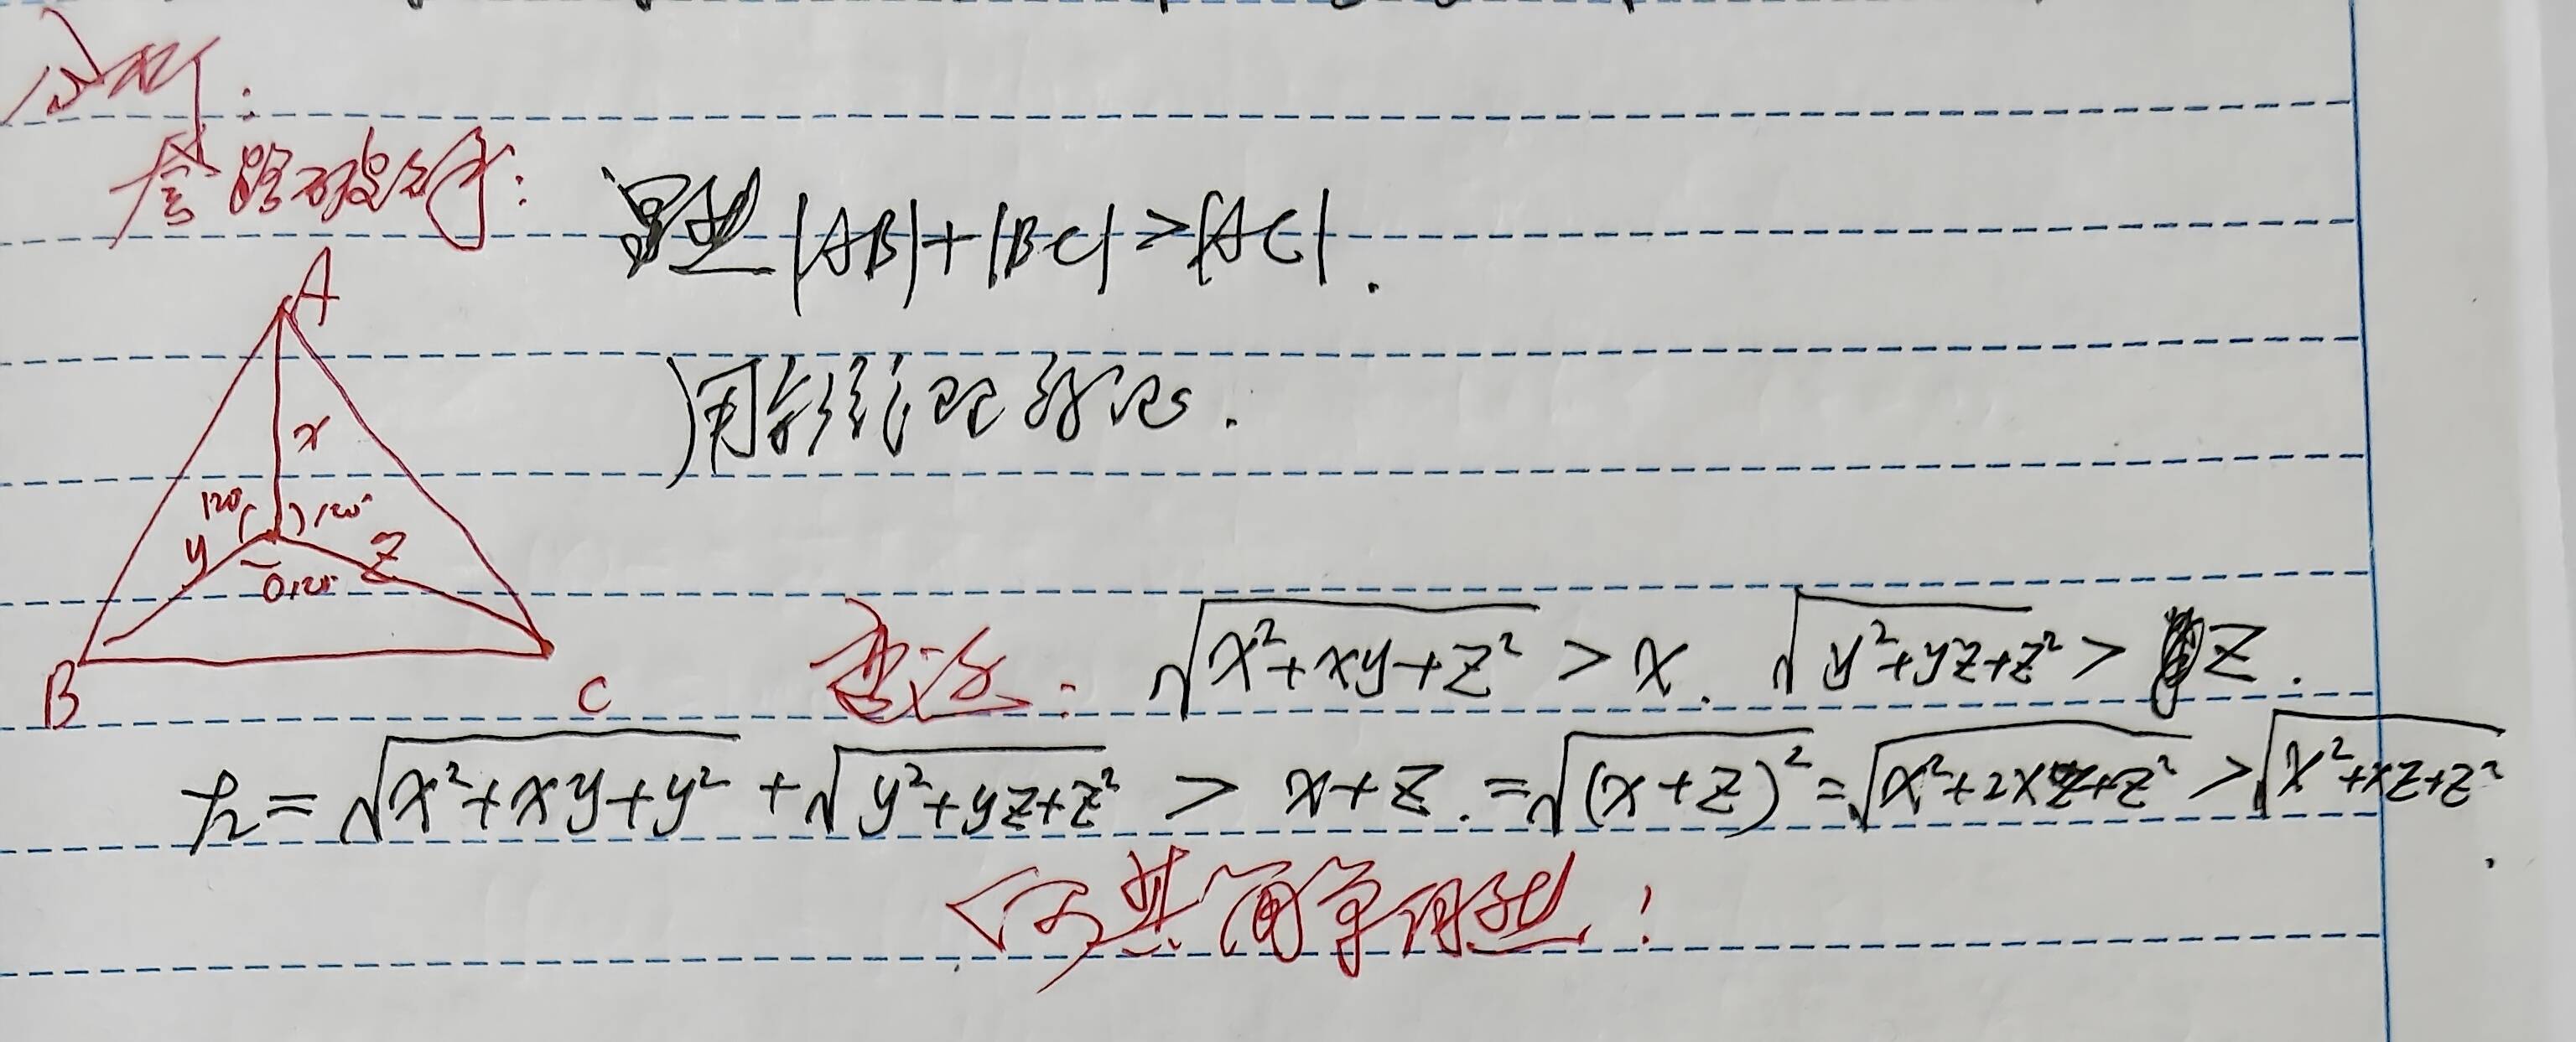 分析:
套路破解:
显然|AB|+|BC|>|AC|.
用余弦定理
A
x
120° 120°
y z
120°
B C
变式: √(x²+xy+z²) > x. √(y²+yz+z²) > z.
左=√(x²+xy+y²) + √(y²+yz+z²) > x+z. =√((x+z)²) =√(x²+2xz+z²) >√(x²+xz+z²).
何其简单明了!